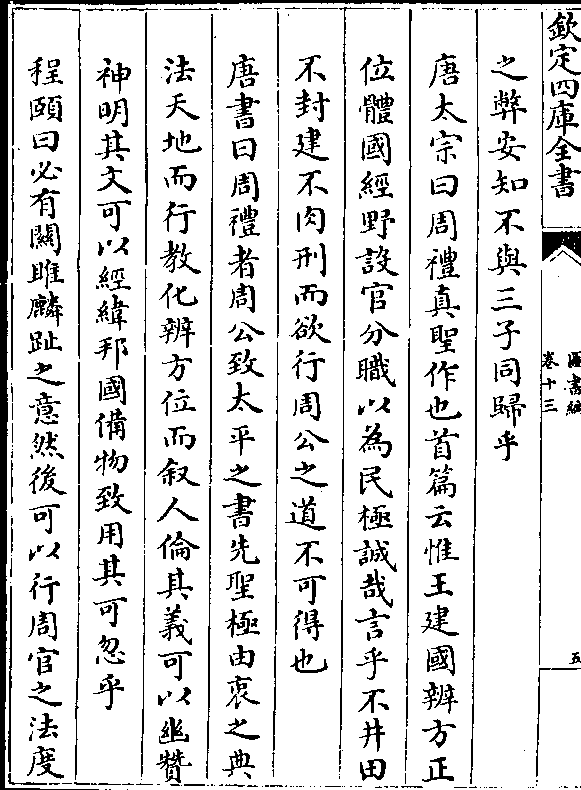 欽定四庫全書
圖書編
卷十三
五
之弊安知不與三子同歸乎
唐太宗曰周禮真聖作也首篇云惟王建國辨方正
位體國經野設官分職以為民極誠哉言乎不井田
不封建不肉刑而欲行周公之道不可得也
唐書曰周禮者周公致太平之書先聖極由衷之典
法天地而行教化辨方位而叙人倫其義可以幽贊
神明其文可以經緯邦國備物致用其可忽乎
程頤曰必有關雎麟趾之意然後可以行周官之法度